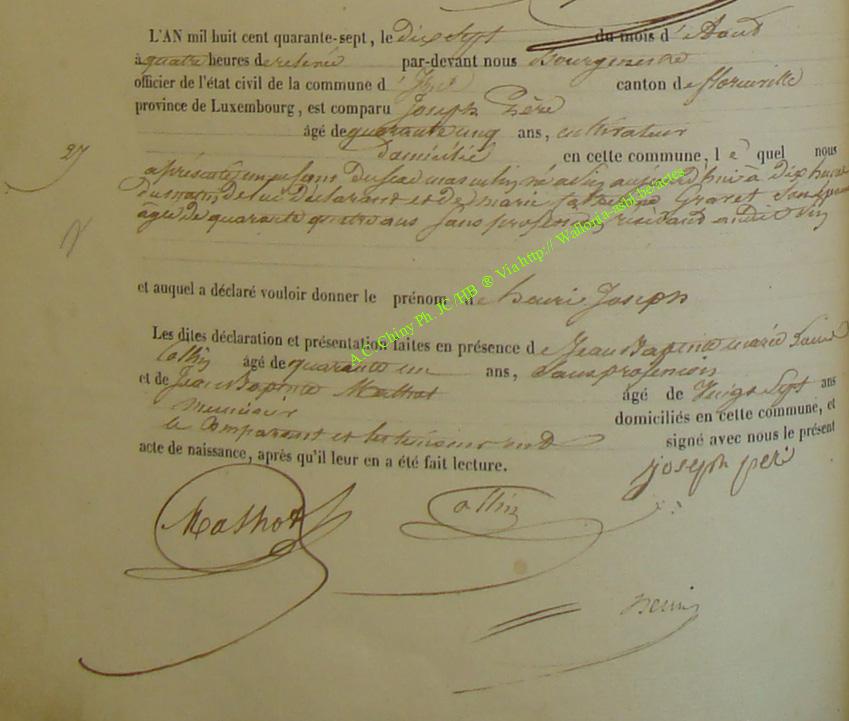 L'AN mil huit cent quarante-sept, le dix Sept du mois d'Aout
à quatre heures de relevée par-devant nous Bourgmestre
officier de l'état civil de la commune d' canton de florenville
province de Luxembourg, est comparu Joseph Père
27
âgé de quarante cinq ans, cultivateur
domicilié en cette commune, le quel nous
a présenté un enfant du sexe masculin né a aujourd'hui à Dix heures
du matin, de lui Déclarant et de marie Gravet Son épouse
âgée de quarante quatre ans Sans profession résidant audit
et auquel a déclaré vouloir donner le prénom de henri Joseph
Les dites déclaration et présentation faites en présence de Jean Baptiste marie
Collin âgé de quarante un ans, Sans profession
et de Jean Baptiste Mathot âgé de Vingt Sept ans
meunier domiciliés en cette commune, et
le Comparant et les témoins ont signé avec nous le présent
acte de naissance, après qu'il leur en a été fait lecture.
joseph peré
Mathot Collin
A.C. Chiny Ph. JC /HB ® Via http:// Wallonia-asbl.be/actes